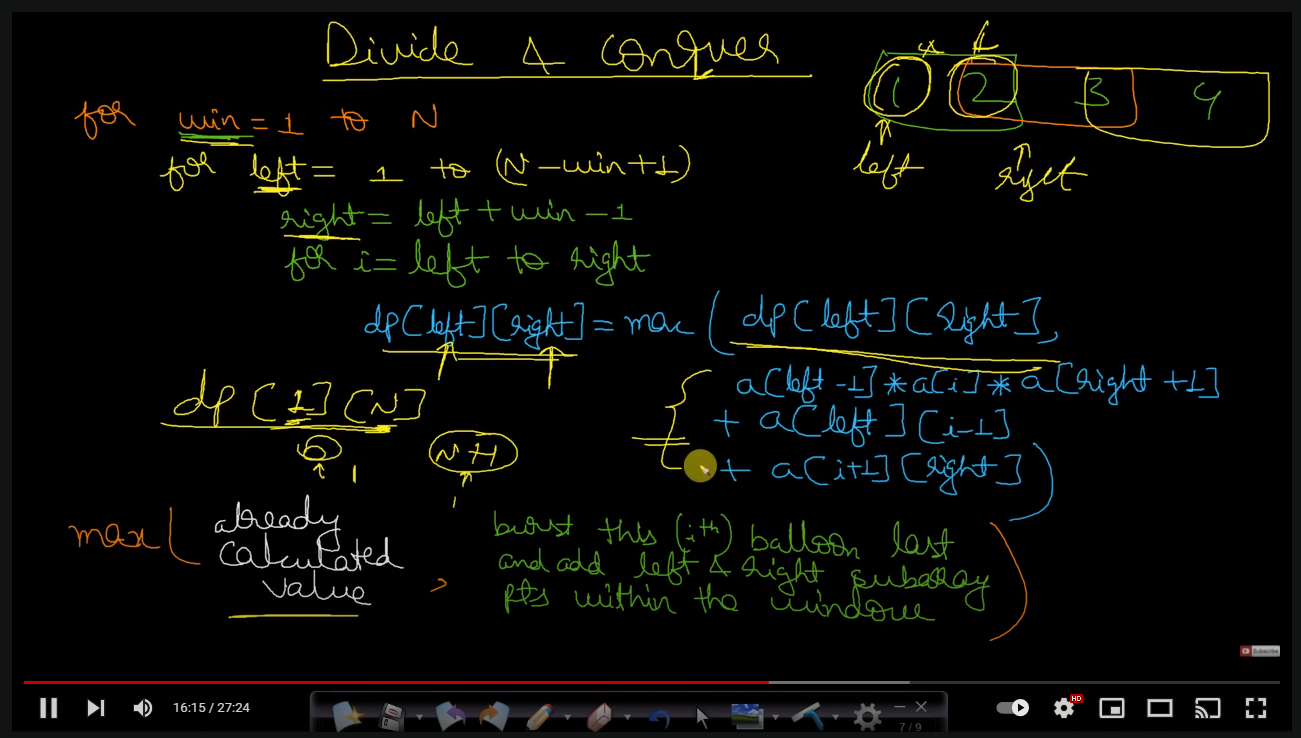 Divide & Conquer
for win = 1 to N
for left = 1 to (N-win+1)
right = left + win - 1
for i = left to right
dp[left][right] = max ( dp[left][right],
a[left-1] * a[i] * a[right+1]
+ a[left][i-1]
+ a[i+1][right] )
1 2 3 4
left right
dp[1][N]
0 1 N+1 1
max ( already calculated value , burst this (ith) balloon last and add left & right subarray pts within the window )
Subscribe
16:15 / 27:24
HD
7 / 9